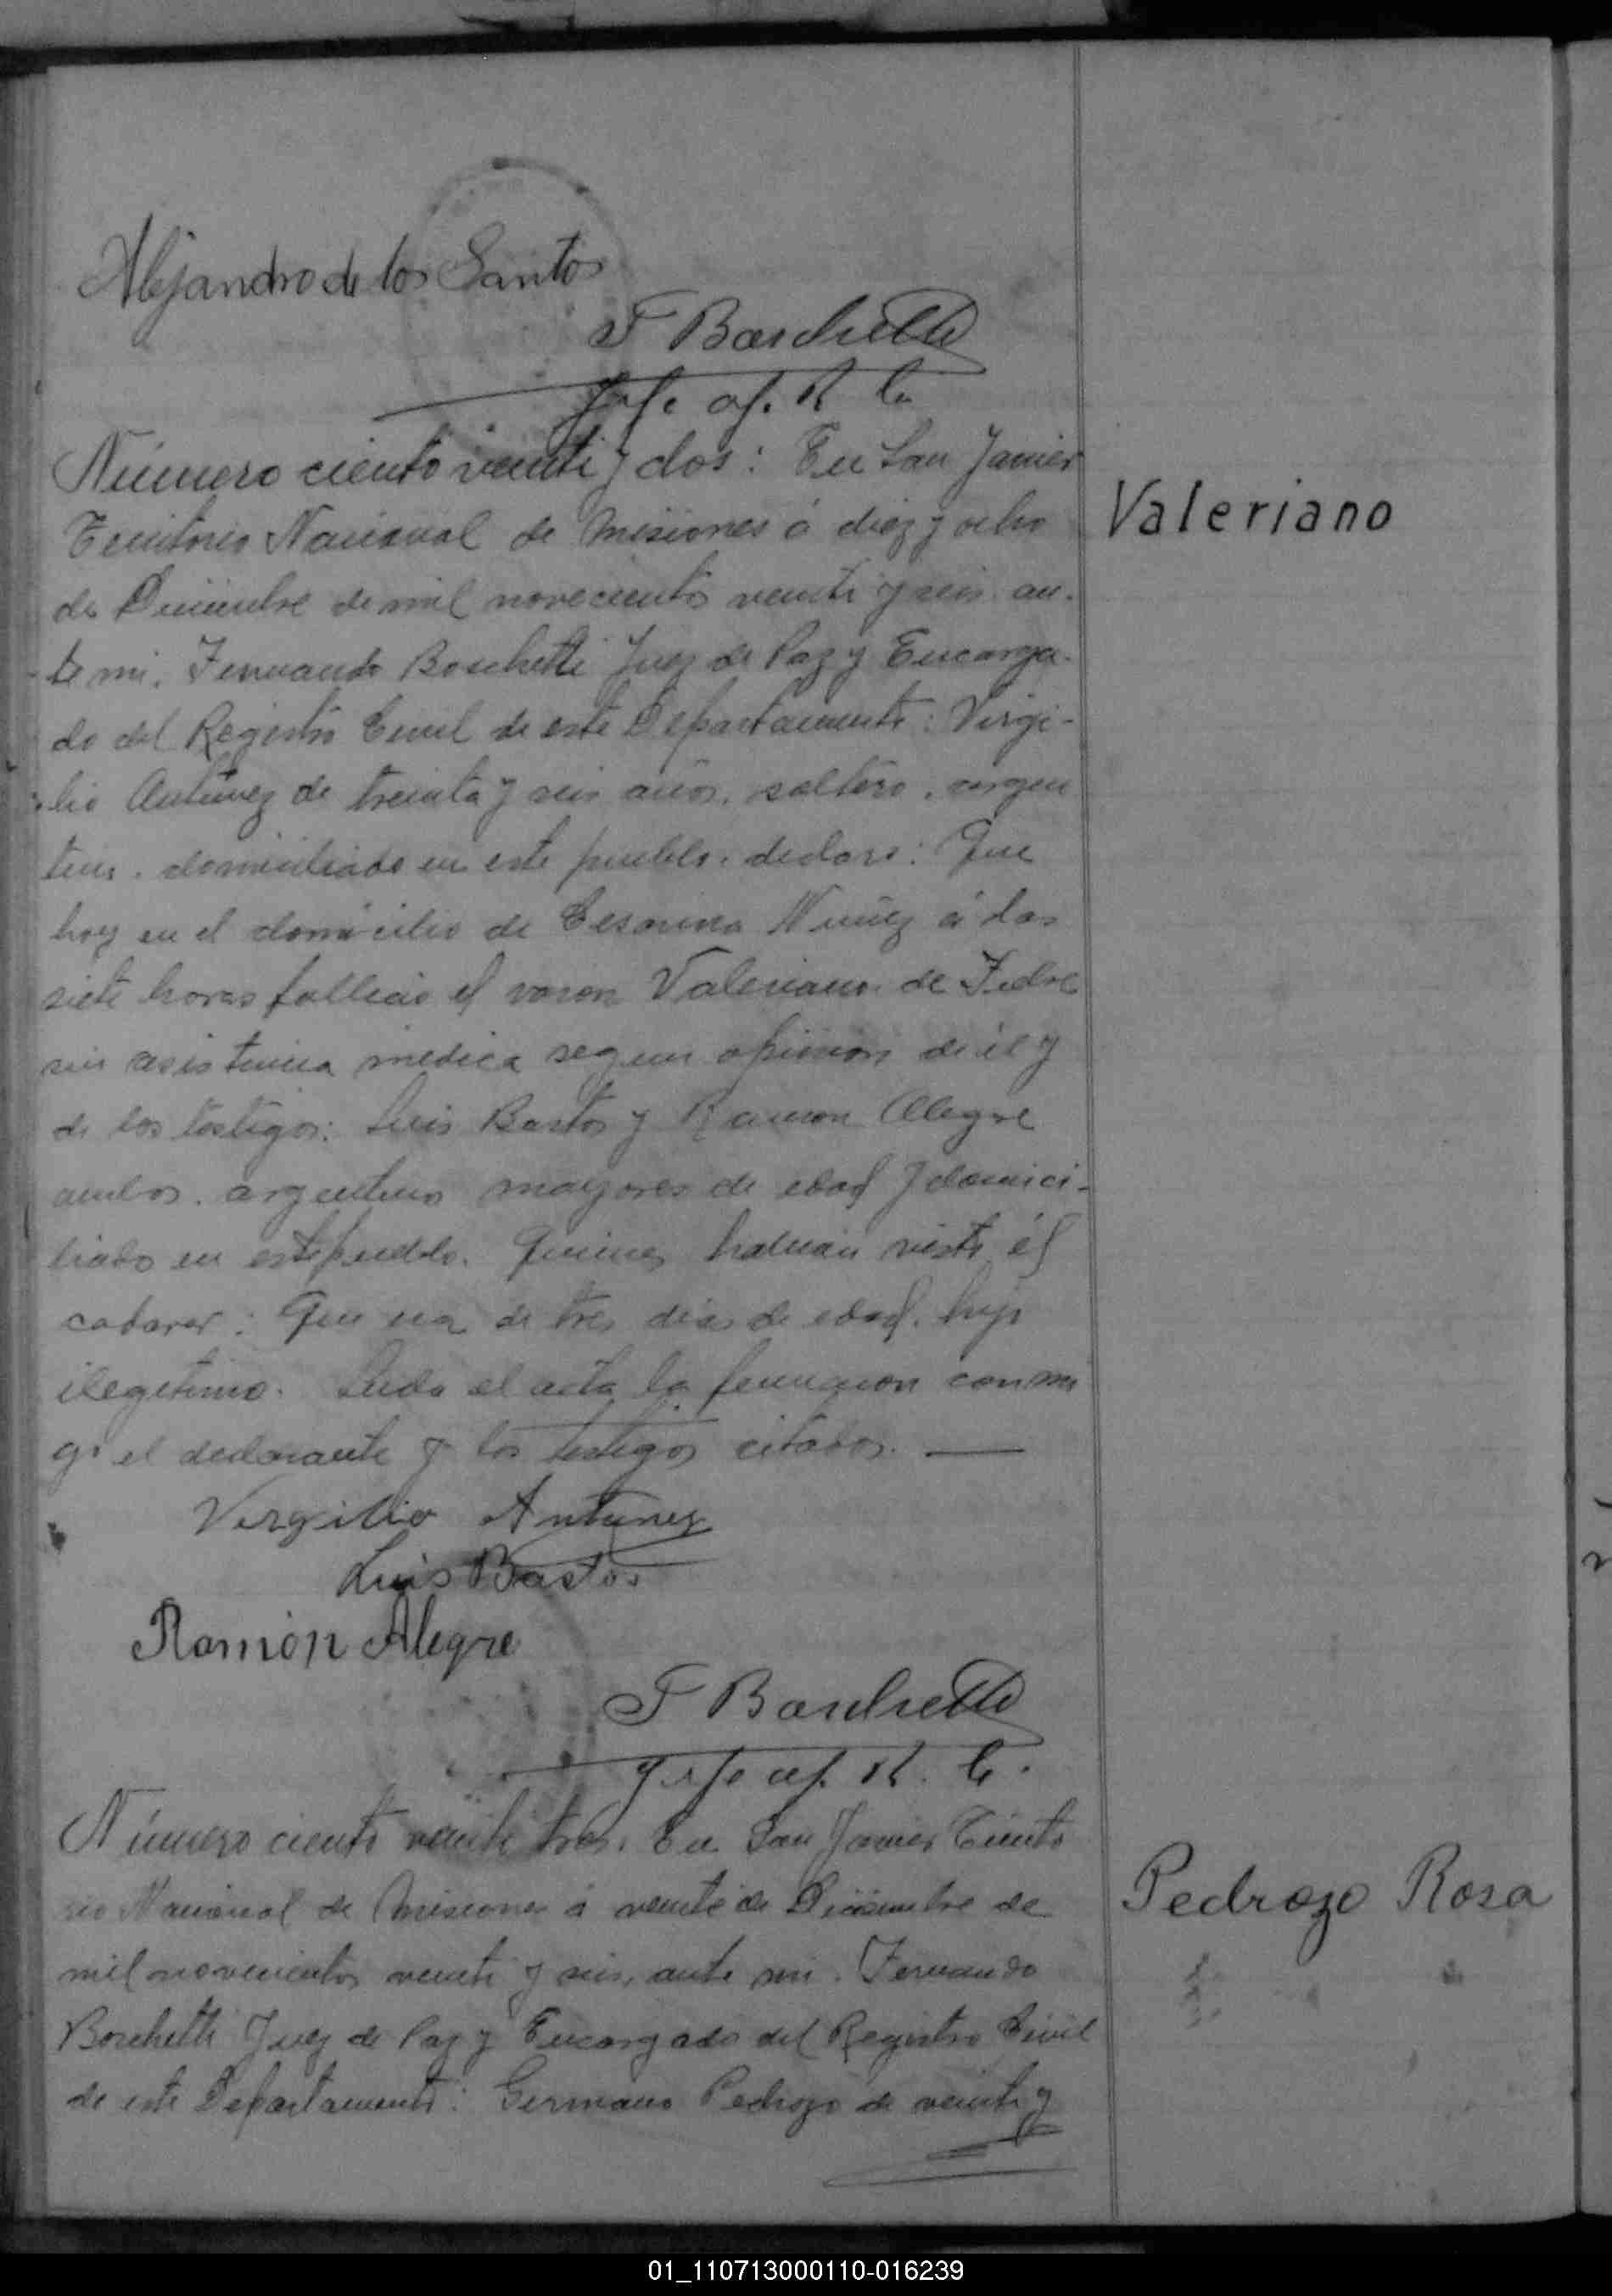 Alejandro de los Santos
F Boschetti
Jefe of. R C.
Número ciento veinti y dos: En San Javier
Valeriano
Territorio Nacional de Misiones á diez y ocho
de Diciembre de mil novecientos veinti y seis. an-
te mi. Fernando Boschetti Juez de Paz y Encarga-
do del Registro Civil de este Departamento: Virgi-
lio Antunez de treinta y seis años. soltero. argen
tino. domiciliado en este pueblo. declaro: Que
hoy en el domicilio de Cesarina Nuñez á las
siete horas fallecio el varon Valeriano de Fiebre
sin asistencia medica segun opinion de él y
de los testigos: Luis Bastos y Ramon Alegre
ambos. argentinos mayores de edad y domici-
liado en este pueblo. Quienes habian visto él
cadaver: Que era de tres dias de edad. hijo
ilegitimo. Leida el acta la firmaron conmi
go el declarante y los testigos citados. —
Virgilio Antunez
Luis Bastos
Ramón Alegre
F Boschetti
Jefe of. R. C.
Número ciento veinte tres. En San Javier Territo
Pedrozo Rosa
rio Nacional de Misiones á veinte de Diciembre de
mil novecientos veinti y seis, ante mi. Fernando
Boschetti Juez de Paz y Encargado del Registro Civil
de este Departamento: Germano Pedrozo de veinti y
01_110713000110-016239